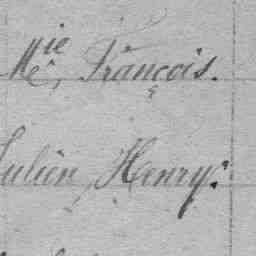 Mie, François.
Julien, Henry.